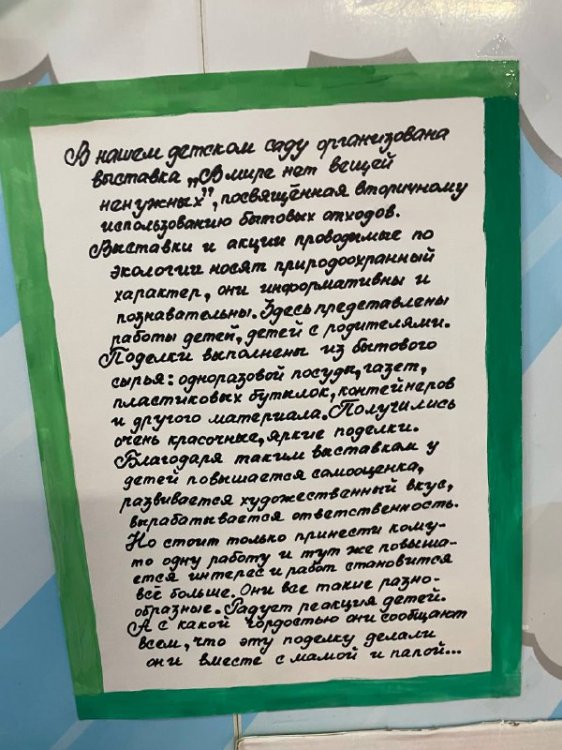 В нашем детском саду организована
выставка „В мире нет вещей
ненужных”, посвящённая вторичному
использованию бытовых отходов.
Выставки и акции проводимые по
экологии носят природоохранный
характер, они информативны и
познавательны. Здесь представлены
работы детей, детей с родителями.
Поделки выполнены из бытового
сырья: одноразовой посуды, газет,
пластиковых бутылок, контейнеров
и другого материала. Получились
очень красочные, яркие поделки.
Благодаря таким выставкам у
детей повышается самооценка,
развивается художественный вкус,
вырабатывается ответственность.
Но стоит только принести кому-
то одну работу и тут же повыша-
ется интерес и работ становится
всё больше. Они все такие разно-
образные. Радует реакция детей.
А с какой гордостью они сообщают
всем, что эту поделку делали
они вместе с мамой и папой...